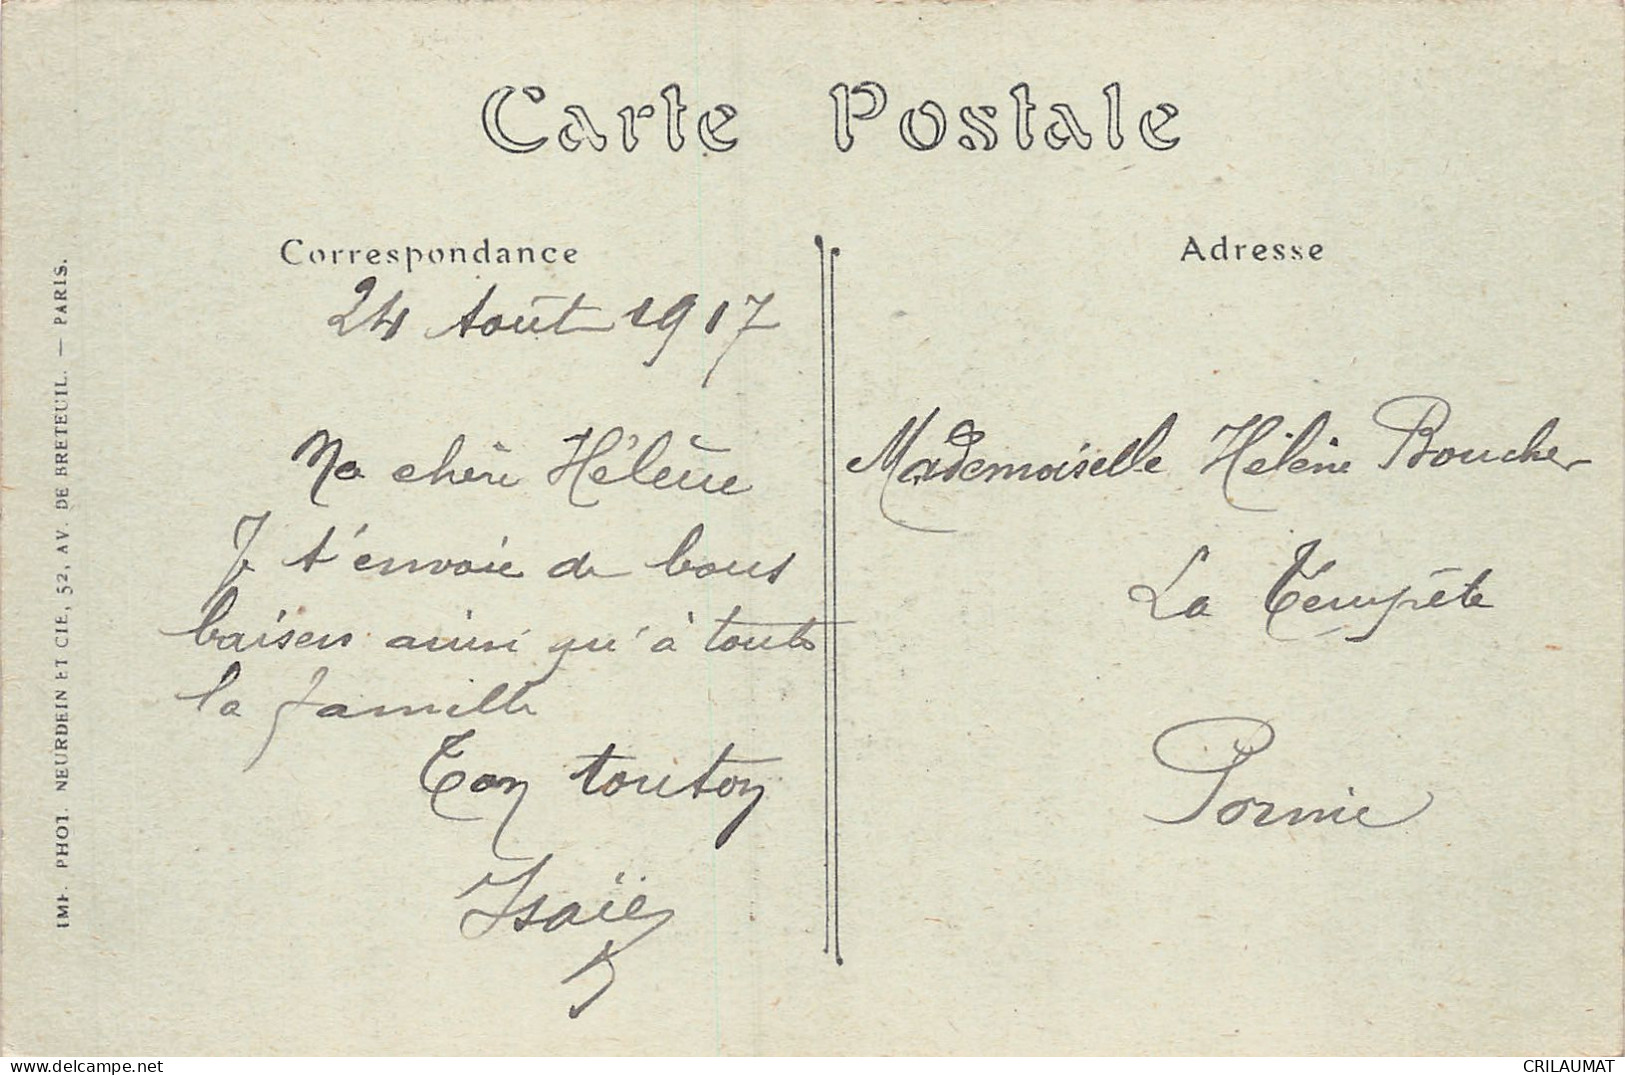 Carte Postale
Correspondance
24 Août 1917
Ma chère Hélène
Je t'envoie de bons
baisers ainsi qu'à toute
la famille
Ton tonton
Isaïe
Adresse
Mademoiselle Hélène Boucher
La Tempête
Pornic
IMP. PHOT. NEURDEIN ET CIE, 52, AV. DE BRETEUIL. — PARIS.
www.delcampe.net
CRILAUMAT